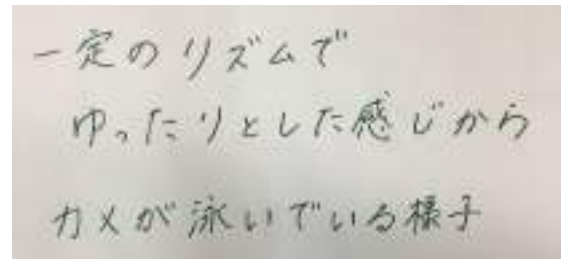 一定のリズムで
ゆったりとした感じから
カメが泳いでいる様子